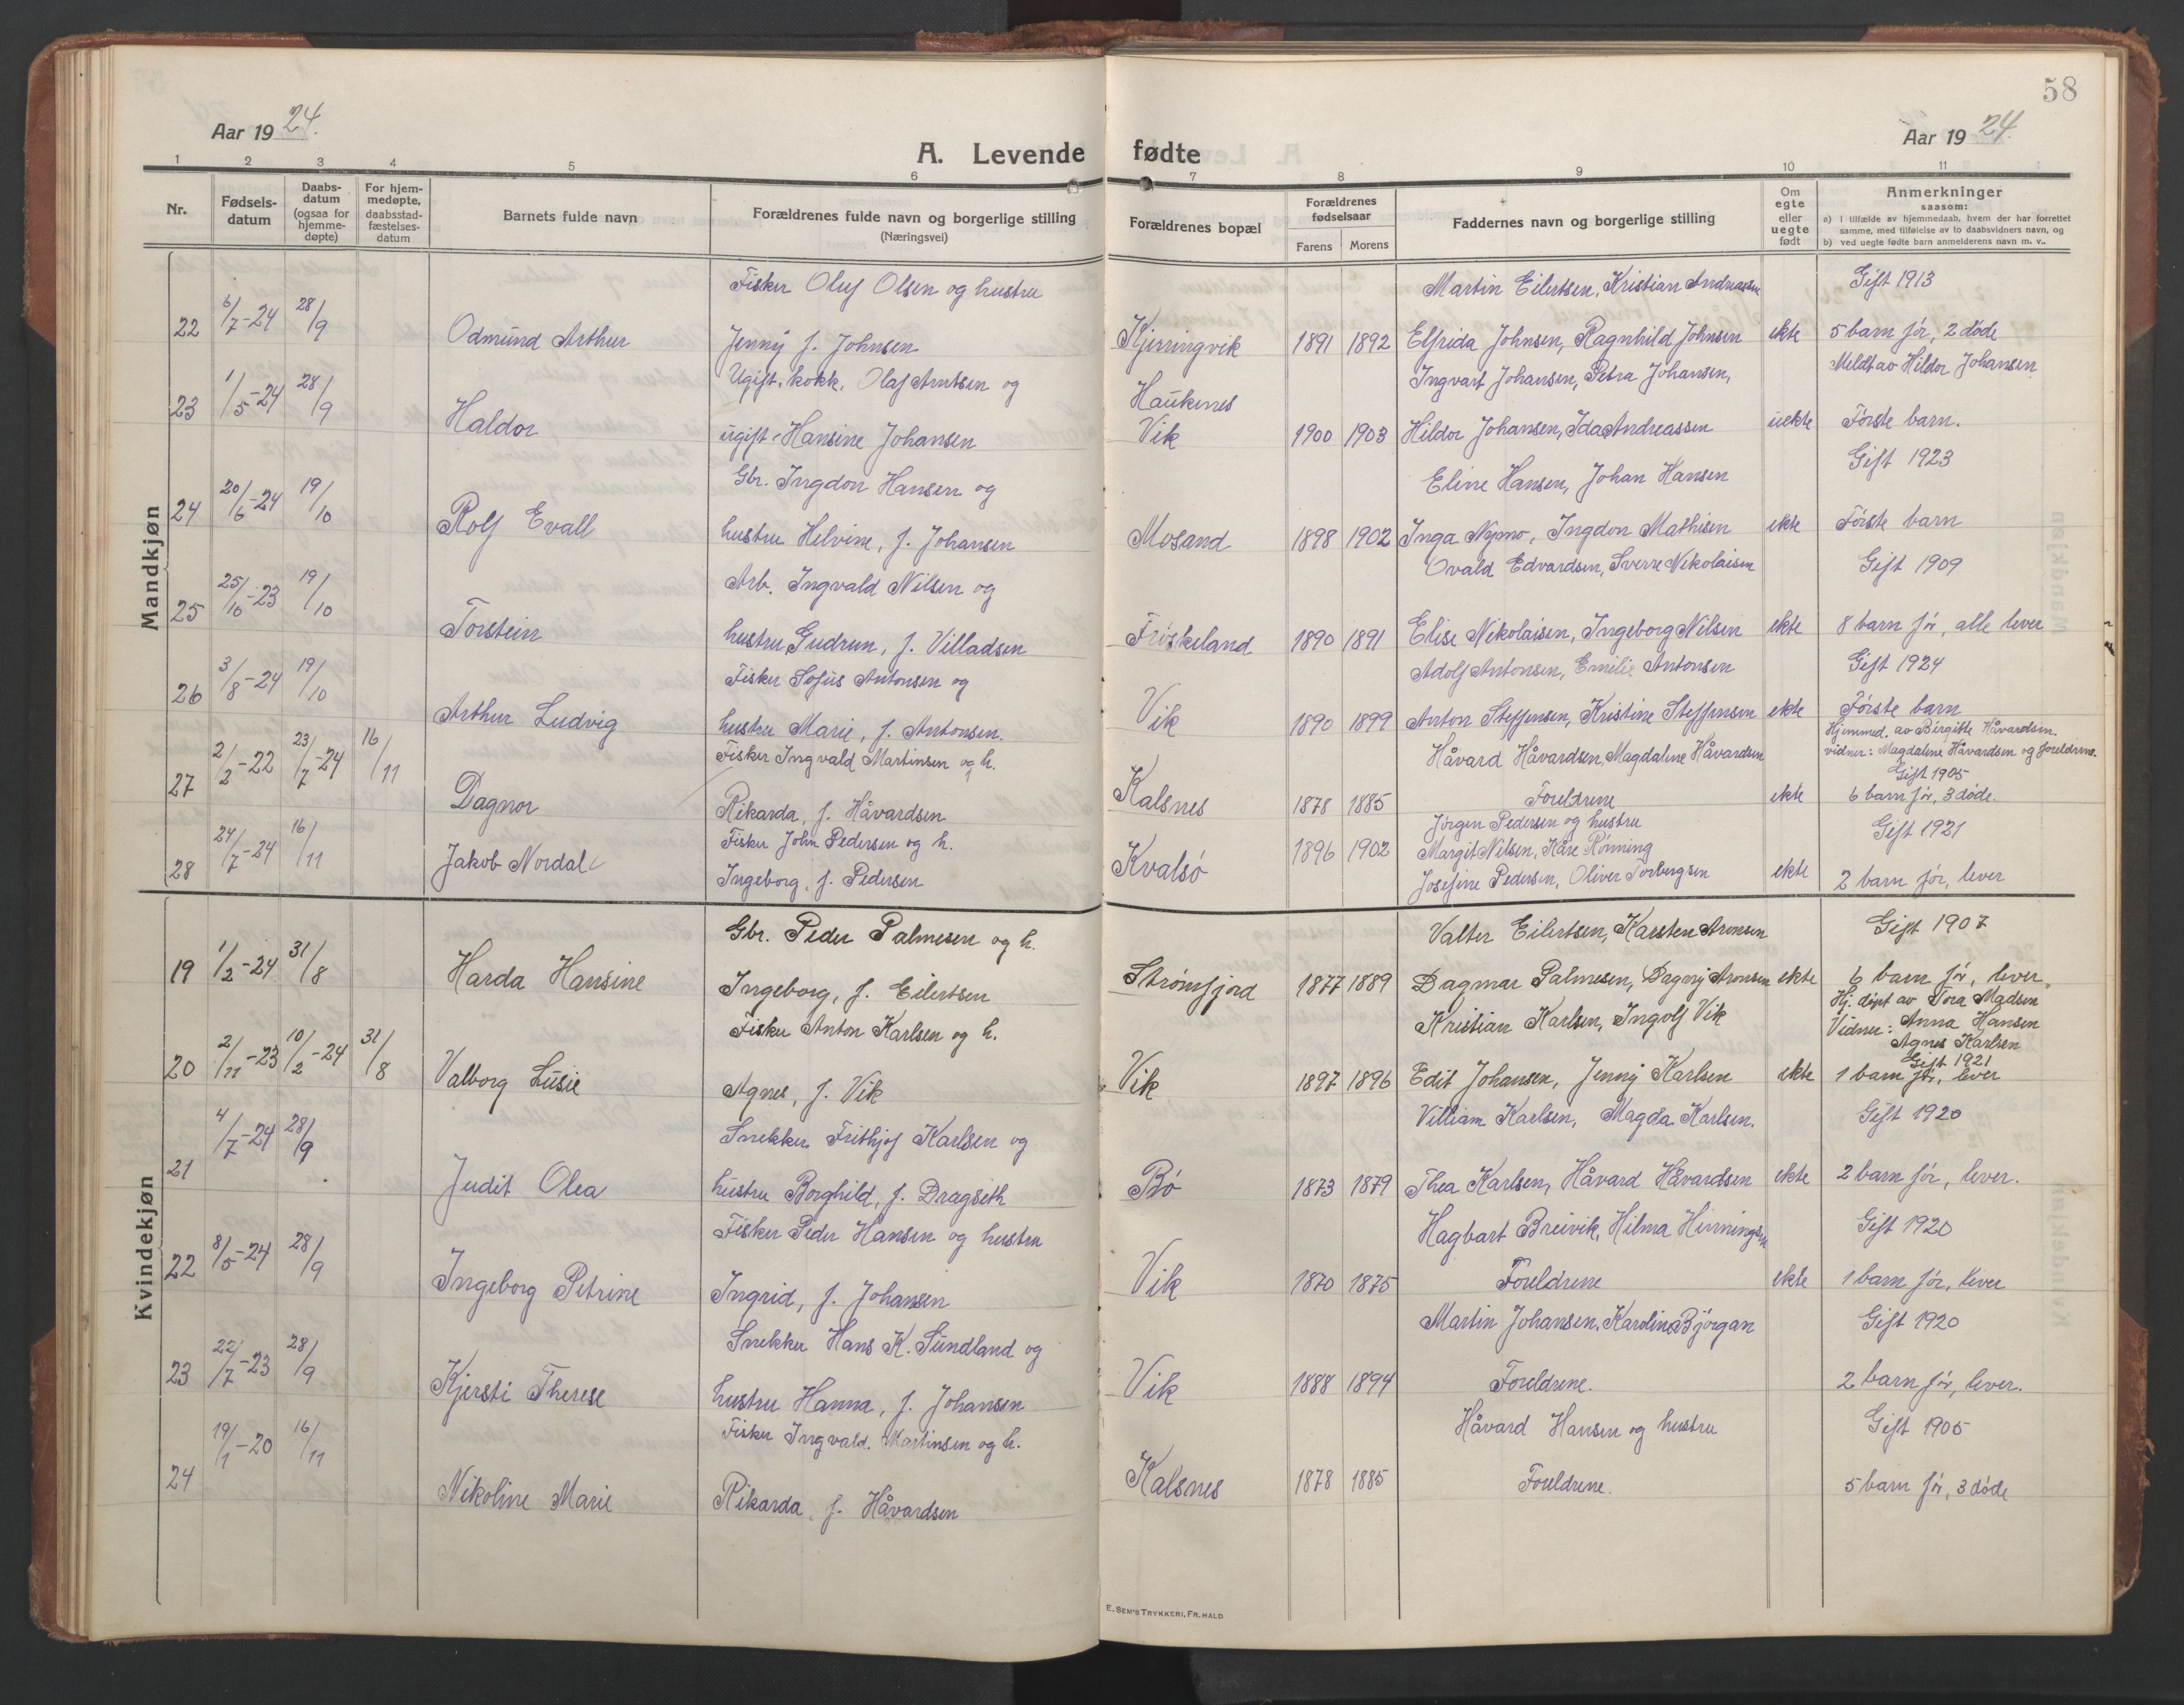 58
Aar 1924.
Aar 1924.
A. Levende fødte
1 2 3 4 5 6 7 8 9 10 11
Nr.
Fødsels-datum
Daabs-datum (ogsaa for hjemme-døpte)
For hjem-medøpte, daabsstad-fæstelses-datum
Barnets fulde navn
Forældrenes fulde navn og borgerlige stilling (Næringsvei)
Forældrenes bopæl
Forældrenes fødselsaar
Farens Morens
Faddernes navn og borgerlige stilling
Om egte eller uegte født
Anmerkninger
saasom:
a) i tilfælde av hjemmedaab, hvem der har forrettet samme, med tilføielse av to daabsvidners navn, og
b) ved uegte fødte barn anmelderens navn m. v..
Mandkjøn
Fisker Oluf Olsen og hustru Martin Eilertsen, Kristian Andreassen Gift 1913
22 6/7-24 28/9 Odmund Arthur Jenny f. Johnsen Kjerringvik 1891 1892 Elfrida Johnsen, Ragnhild Johnsen ekte 5 barn før, 2 døde
Ugift, kokk, Olaf Arntsen og Haukenes Ingvart Johansen, Petra Johansen, Meldt av Hildor Johansen
23 1/5-24 28/9 Haldor ugift Hansine Johansen Vik 1900 1903 Hildor Johansen, Ida Andreassen uekte Første barn.
Gbr. Ingdon Hansen og Eline Hansen, Johan Hansen Gift 1923
24 20/6-24 19/10 Rolf Evall hustru Helvine, f. Johansen Mosand 1898 1902 Inga Nymo, Ingdon Mathisen ekte Første barn
Arb. Ingvald Nilsen og Ovald Edvardsen, Sverre Nikolaisen Gift 1909
25 25/10-23 19/10 Torstein hustru Gudrun, f. Villadsen Friskeland 1890 1891 Elise Nikolaisen, Ingeborg Nilsen ekte 8 barn før, alle lever
Fisker Sofus Antonsen og Adolf Antonsen, Emilie Antonsen Gift 1924
26 3/8-24 19/10 Arthur Ludvig hustru Marie, f. Antonsen Vik 1890 1899 Anton Steffensen, Kristine Steffensen ekte Første barn
Fisker Ingvald Martinsen og h. Håvard Håvardsen, Magdalene Håvardsen Hjemmed. av Birgitte Håvardsen.
vidner: Magdalene Håvardsen og foreldrene.
Gift 1905
27 2/2-22 23/7-24 16/11 Dagnor Rikarda, f. Håvardsen Kalsnes 1878 1885 Foreldrene ekte 6 barn før, 3 døde.
Fisker John Pedersen og h. Jørgen Pedersen og hustru Gift 1921
1896 1902 Margit Nilsen, Kåre Rønning
28 24/7-24 16/11 Jakob Nordal Ingeborg, f. Pedersen Kvalsø Josefine Pedersen, Oliver Torbergsen ekte 2 barn før, lever
Kvindekjøn
Gbr. Peder Palmesen og h. Valter Eilertsen, Karsten Aronsen Gift 1907
19 1/2-24 31/8 Harda Hansine Ingeborg, f. Eilertsen Strømfjord 1877 1889 Dagmar Palmesen, Dagny Aronsen ekte 6 barn før, lever.
Fisker Anton Karlsen og h. Kristian Karlsen, Ingolf Vik Hj. døpt av Tora Madsen
Vidner: Anna Hansen
Agnes Karlsen
Gift 1921
20 2/11-23 10/2-24 31/8 Valborg Lusie Agnes, f. Vik Vik 1897 1896 Edit Johansen, Jenny Karlsen ekte 1 barn før, lever
Snekker Frithjof Karlsen og Villiam Karlsen, Magda Karlsen. Gift 1920
21 4/7-24 28/9 Judit Olea hustru Borghild, f. Dragseth Bø 1873 1879 Thea Karlsen, Håvard Håvardsen ekte 2 barn før, lever.
Fisker Peder Hansen og hustru Hagbart Breivik, Hilma Hinningsen Gift 1920
22 8/5-24 28/9 Ingeborg Petrine Ingrid, f. Johansen Vik 1870 1875 Foreldrene ekte 1 barn før, lever
Snekker Hans K. Sundland og Martin Johansen, Karoline Bjørgan Gift 1920
23 22/7-23 28/9 Kjersti Therese hustru Hanna, f. Johansen Vik 1888 1894 Foreldrene. 2 barn før, lever.
Fisker Ingvald Martinsen og h. Håvard Hansen og hustru Gift 1905
24 19/1-20 16/11 Nikoline Marie Rikarda, f. Håvardsen Kalsnes 1878 1885 Foreldrene. 5 barn før, 3 døde
E. SEM'S TRYKKERI, FR.HALD